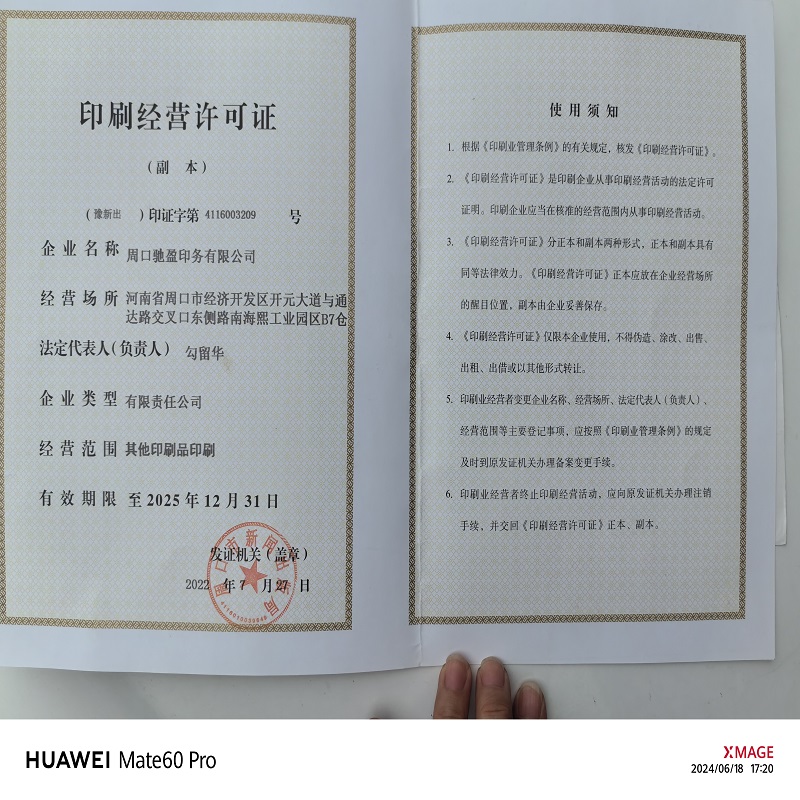 印刷经营许可证
(副 本)
(豫新出 ) 印证字第 4116003209 号
企业名称 周口驰盈印务有限公司
经营场所 河南省周口市经济开发区开元大道与通
达路交叉口东侧路南海熙工业园区B7仓
法定代表人(负责人) 勾留华
企业类型 有限责任公司
经营范围 其他印刷品印刷
有效期限 至 2025 年 12 月 31 日
发证机关(盖章)
2022 年 7 月 27 日
周口市新闻出版局
使用须知
1. 根据《印刷业管理条例》的有关规定,核发《印刷经营许可证》。
2. 《印刷经营许可证》是印刷企业从事印刷经营活动的法定许可
证明。印刷企业应当在核准的经营范围内从事印刷经营活动。
3. 《印刷经营许可证》分正本和副本两种形式,正本和副本具有
同等法律效力。《印刷经营许可证》正本应放在企业经营场所
的醒目位置,副本由企业妥善保存。
4. 《印刷经营许可证》仅限本企业使用,不得伪造、涂改、出售、
出租、出借或以其他形式转让。
5. 印刷业经营者变更企业名称、经营场所、法定代表人(负责人)、
经营范围等主要登记事项,应按照《印刷业管理条例》的规定
及时到原发证机关办理备案变更手续。
6. 印刷业经营者终止印刷经营活动,应向原发证机关办理注销
手续,并交回《印刷经营许可证》正本、副本。
HUAWEI Mate60 Pro
XMAGE
2024/06/18 17:20